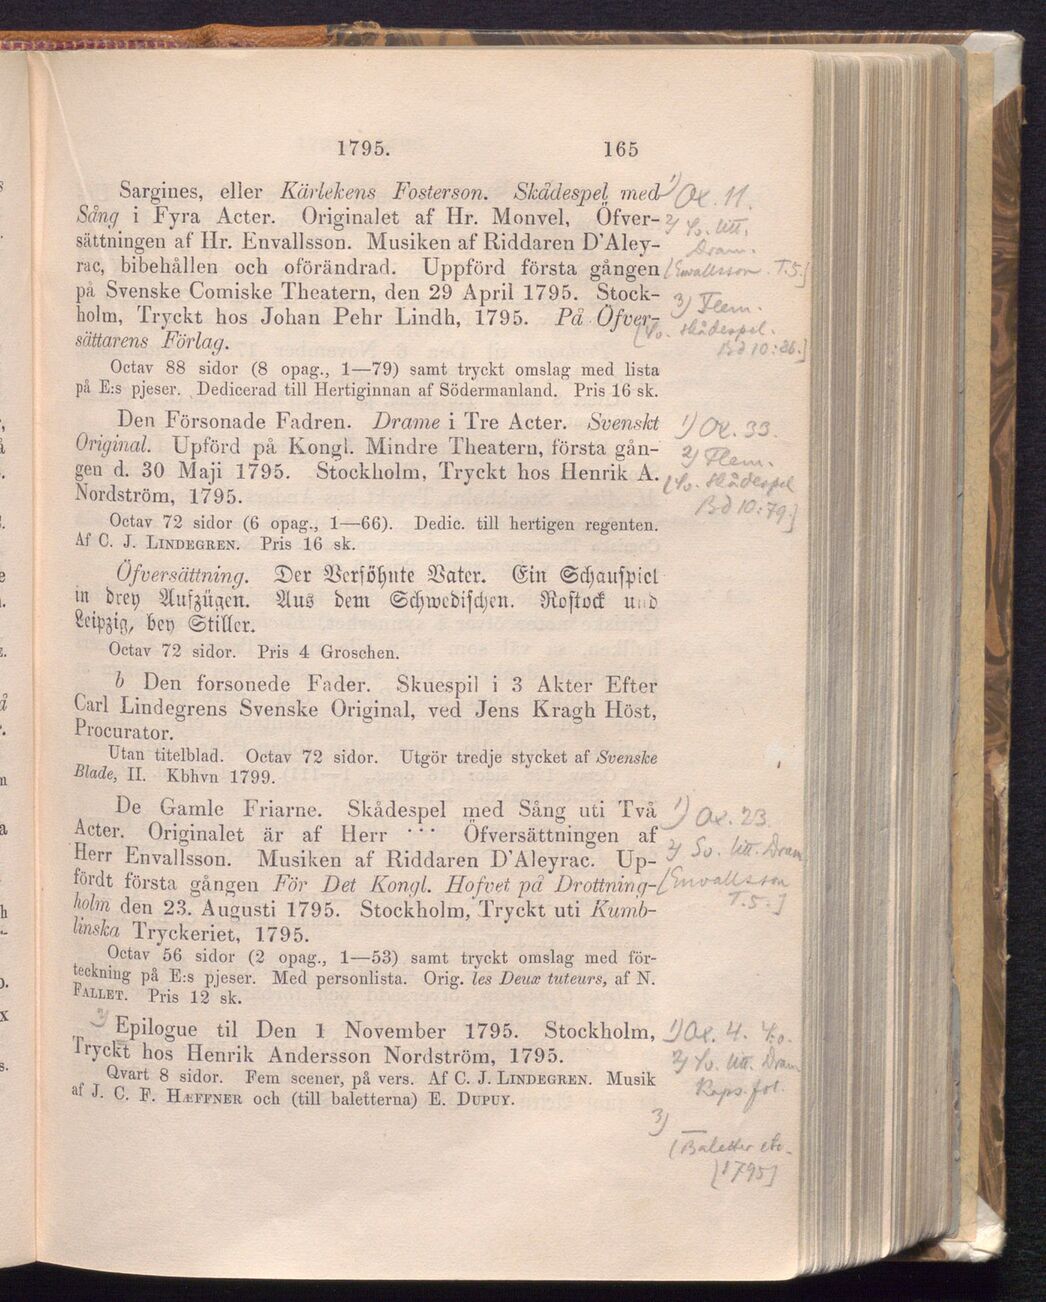 1795. 165
Sargines, eller Kärlekens Fosterson. Skådespel med
Sång i Fyra Acter. Originalet af Hr. Monvel, Öfver-
sättningen af Hr. Envallsson. Musiken af Riddaren D'Aley-
rac, bibehållen och oförändrad. Uppförd första gången
på Svenske Comiske Theatern, den 29 April 1795. Stock-
holm, Tryckt hos Johan Pehr Lindh, 1795. På Öfver-
sättarens Förlag.
Octav 88 sidor (8 opag., 1—79) samt tryckt omslag med lista
på E:s pjeser. Dedicerad till Hertiginnan af Södermanland. Pris 16 sk.
1) Ox. 11.
2) Sv. litt.
Dram.
[Envallsson. T.5.]
3) Flem.
[Sv. skådespel.
Bd 10:26.]
Den Försonade Fadren. Drame i Tre Acter. Svenskt
Original. Upförd på Kongl. Mindre Theatern, första gån-
gen d. 30 Maji 1795. Stockholm, Tryckt hos Henrik A.
Nordström, 1795.
Octav 72 sidor (6 opag., 1—66). Dedic. till hertigen regenten.
Af C. J. LINDEGREN. Pris 16 sk.
1) Ox. 33.
2) Flem.
[Sv. skådespel
Bd 10:79.]
Öfversättning. Der Versöhnte Vater. Ein Schauspiel
in drey Aufzügen. Aus dem Schwedischen. Rostock und
Leipzig, bey Stiller.
Octav 72 sidor. Pris 4 Groschen.
b Den forsonede Fader. Skuespil i 3 Akter Efter
Carl Lindegrens Svenske Original, ved Jens Kragh Höst,
Procurator.
Utan titelblad. Octav 72 sidor. Utgör tredje stycket af Svenske
Blade, II. Kbhvn 1799.
De Gamle Friarne. Skådespel med Sång uti Två
Acter. Originalet är af Herr * * * Öfversättningen af
Herr Envallsson. Musiken af Riddaren D'Aleyrac. Up-
fördt första gången För Det Kongl. Hofvet på Drottning-
holm den 23. Augusti 1795. Stockholm, Tryckt uti Kumb-
linska Tryckeriet, 1795.
Octav 56 sidor (2 opag., 1—53) samt tryckt omslag med för-
teckning på E:s pjeser. Med personlista. Orig. les Deux tuteurs, af N.
FALLET. Pris 12 sk.
1) Ox. 23
2) Sv. litt. Dram
[Envallsson
T.5.]
Epilogue til Den 1 November 1795. Stockholm,
Tryckt hos Henrik Andersson Nordström, 1795.
Qvart 8 sidor. Fem scener, på vers. Af C. J. LINDEGREN. Musik
af J. C. F. HÆFFNER och (till baletterna) E. DUPUY.
1) Ox. 4. 4:o.
2) Sv. litt. Dram
Kaps. fol.
3)
(Baletter etc.
[1795]